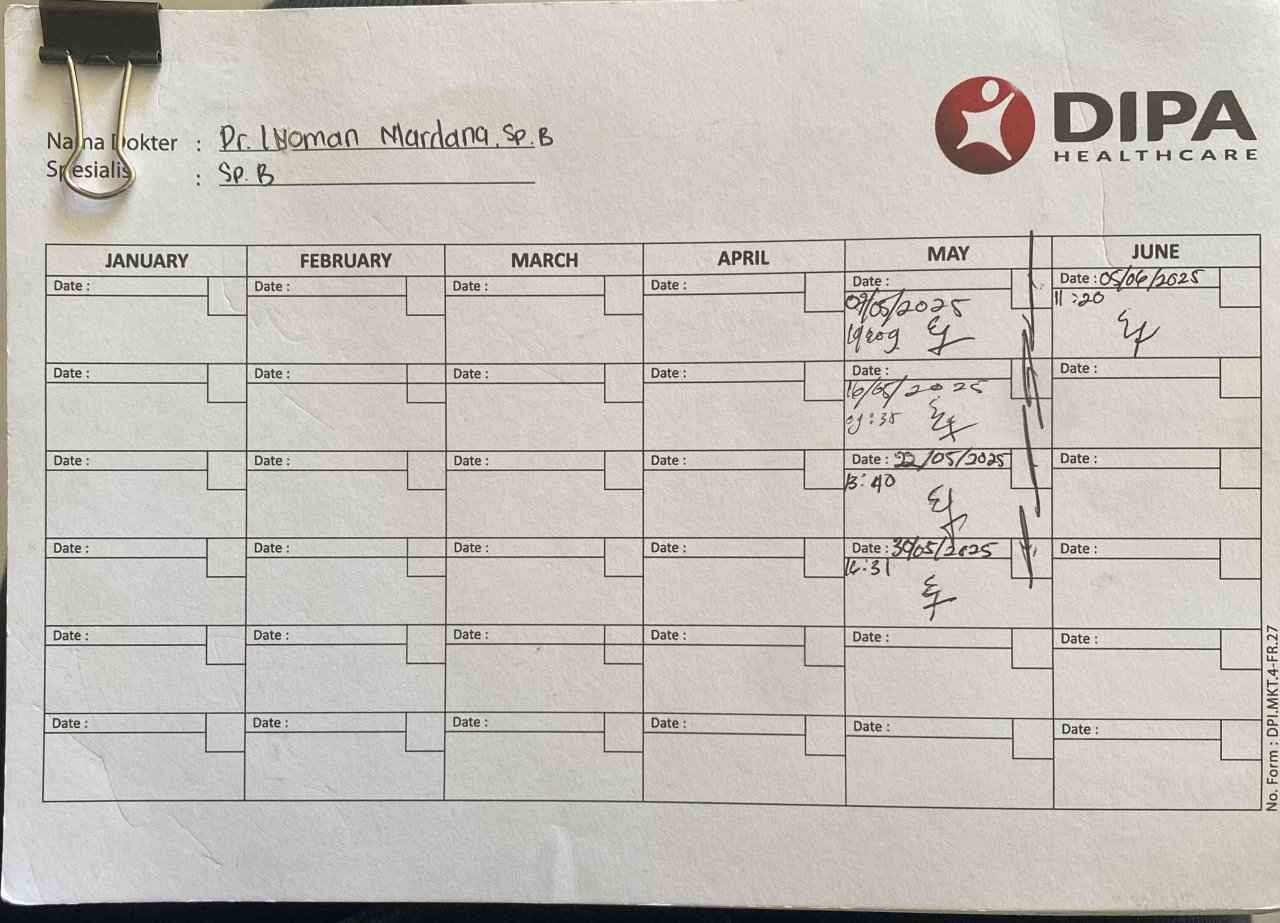 DIPA
HEALTHCARE
Nama Dokter : Dr. I Nyoman Mardana, Sp.B
Spesialis : Sp. B
JANUARY FEBRUARY MARCH APRIL MAY JUNE
Date : Date : Date : Date : Date : Date : 05/06/2025
09/05/2025 11:20
Date : Date : Date : Date : Date : Date :
16/05/2025
Date : Date : Date : Date : Date : 22/05/2025 Date :
13:40
Date : Date : Date : Date : Date : 30/05/2025 Date :
16:31
Date : Date : Date : Date : Date : Date :
Date : Date : Date : Date : Date : Date :
No. Form : DPI.MKT.4-FR.27